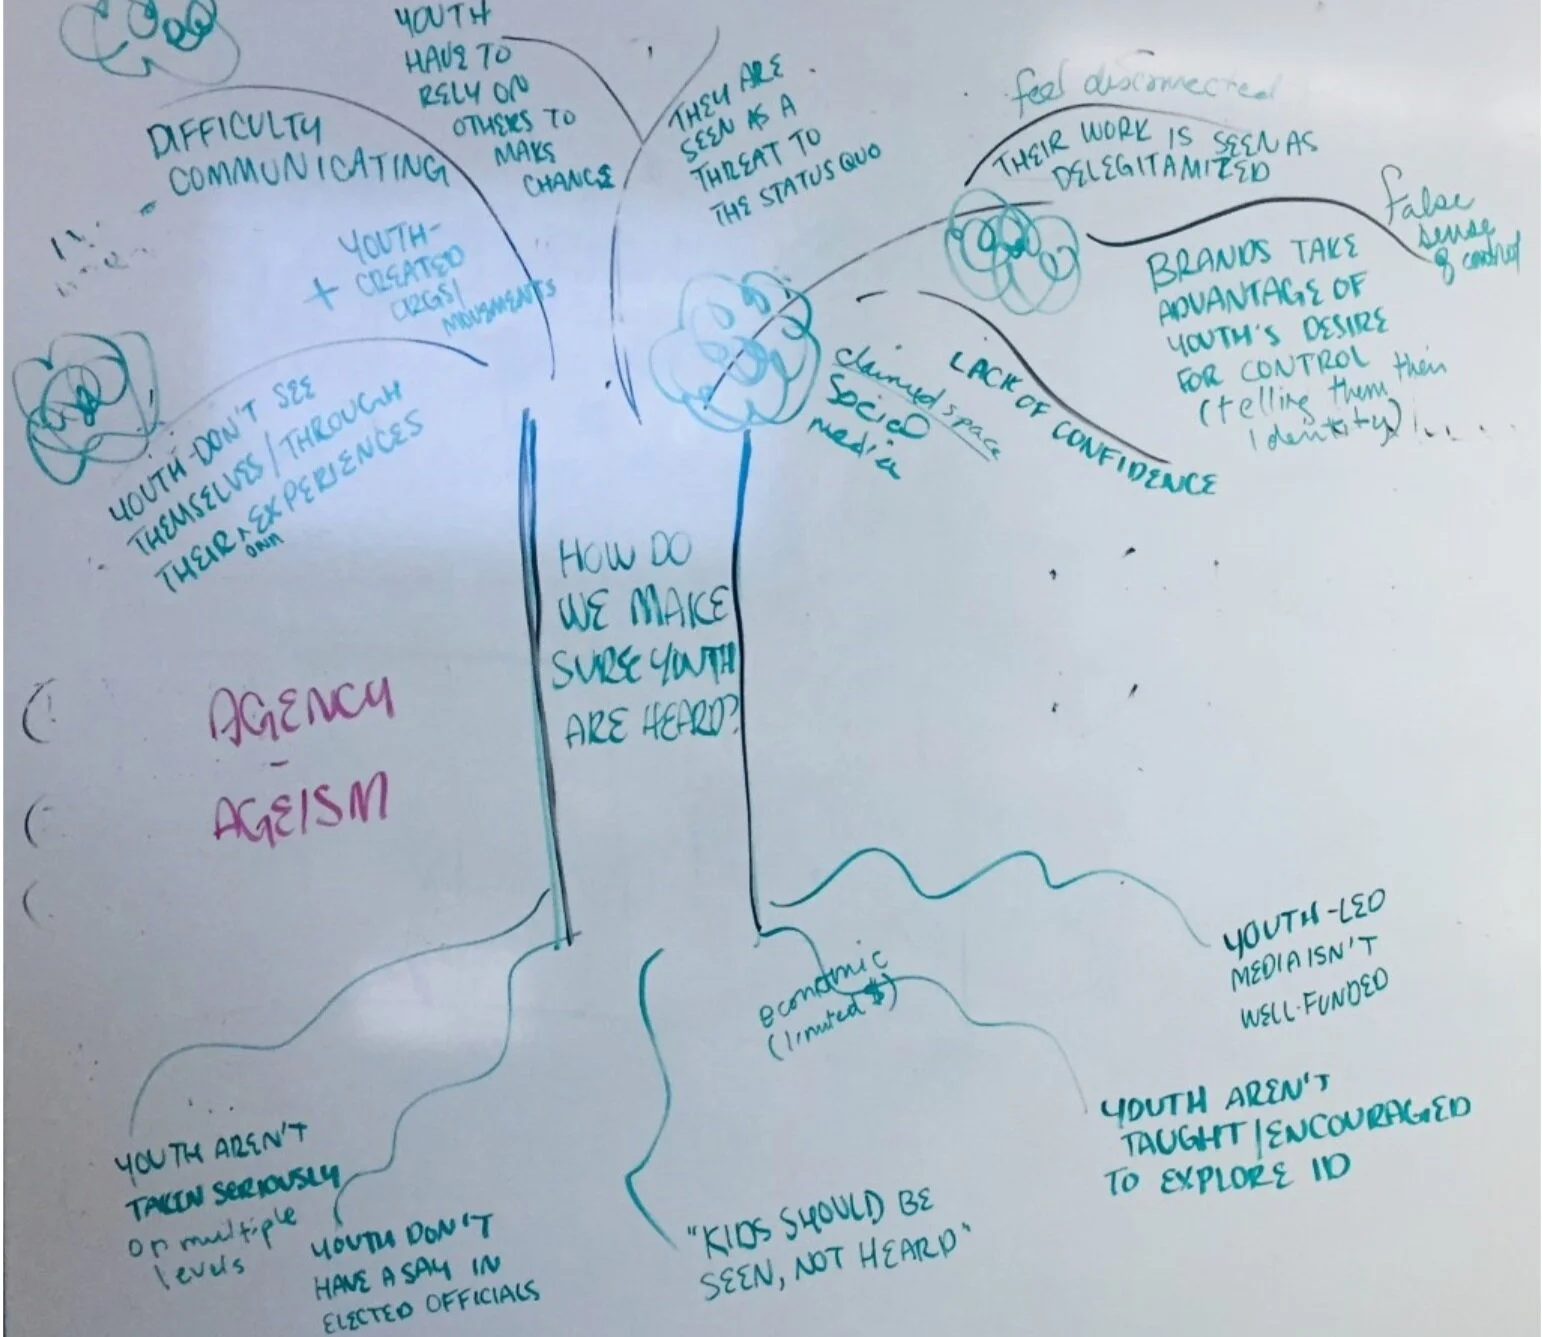 YOUTH
HAVE TO
RELY ON
OTHERS TO
MAKE
CHANGE
THEY ARE
SEEN AS A
THREAT TO
THE STATUS QUO
feel disconnected
THEIR WORK IS SEEN AS
DELEGITAMIZED
False
sense
of control
DIFFICULTY
COMMUNICATING
+ YOUTH-
CREATED
ORGS/
MOVEMENTS
BRANDS TAKE
ADVANTAGE OF
YOUTH'S DESIRE
FOR CONTROL
(telling them their
identity)
claimed space
Social
media
LACK OF CONFIDENCE
YOUTH-DON'T SEE
THEMSELVES/THROUGH
THEIR ^ EXPERIENCES
OWN
HOW DO
WE MAKE
SURE YOUTH
ARE HEARD?
AGENCY
-
AGEISM
economic
(limited $)
YOUTH-LED
MEDIA ISN'T
WELL-FUNDED
YOUTH AREN'T
TAUGHT/ENCOURAGED
TO EXPLORE ID
YOUTH AREN'T
TAKEN SERIOUSLY
on multiple
levels
YOUTH DON'T
HAVE A SAY IN
ELECTED OFFICIALS
"KIDS SHOULD BE
SEEN, NOT HEARD"